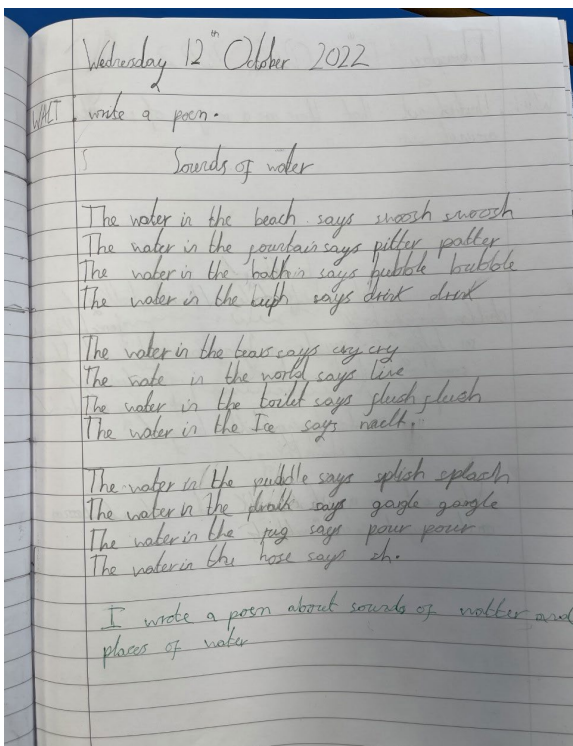 Wednesday 12th October 2022
WALT write a poem.
Sounds of water
The water in the beach says swoosh swoosh
The water in the fountain says pitter patter
The water in the bath says bubble bubble
The water in the says drink drink
The water in the tears says cry cry
The wate in the world says live
The water in the toilet says flush flush
The water in the Ice says
The water in the puddle says splish splash
The water in the says gargle gargle
The water in the jug says pour pour
The water in the hose says sh.
I wrote a poem about sounds of watter and
places of water